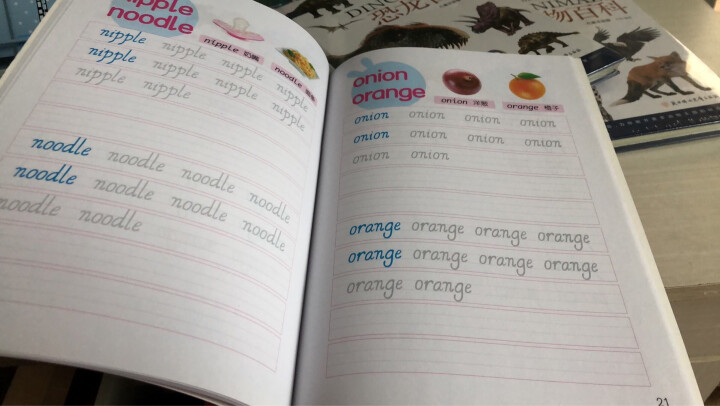 nipple
noodle
nipple 奶嘴
noodle
nipple nipple nipple nipple
nipple nipple nipple nipple
nipple nipple
noodle noodle noodle noodle
noodle noodle noodle noodle
noodle noodle
onion
orange
onion 洋葱
orange 橙子
onion onion onion onion
onion onion onion onion
onion onion
orange orange orange orange
orange orange orange orange
orange orange
21
恐龙
物百科